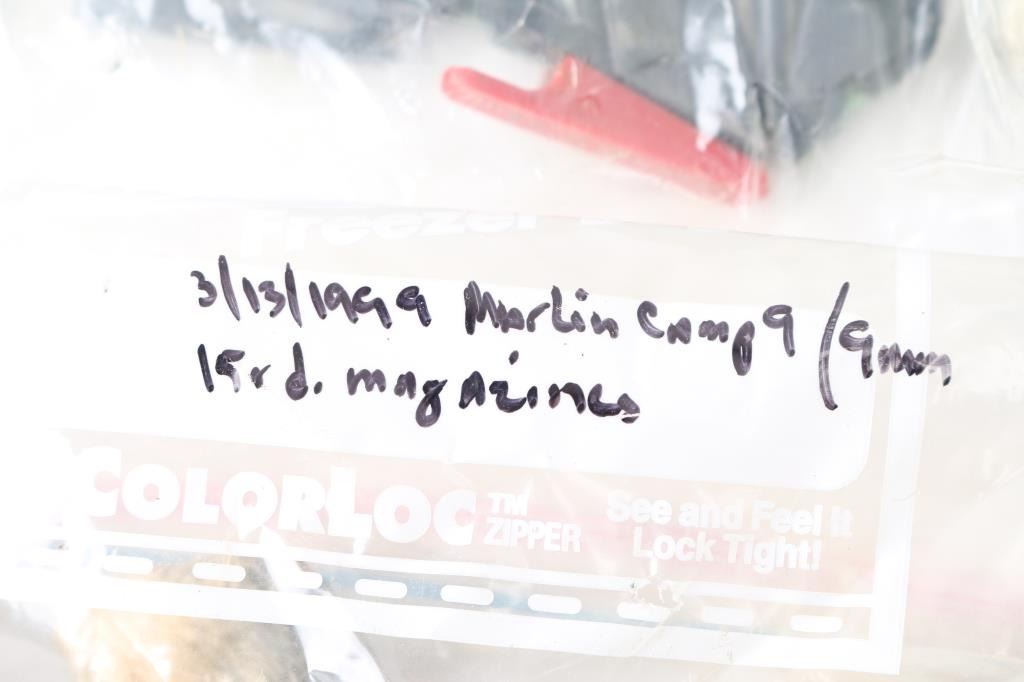 Freezer
3/13/1999 Marlin Camp 9 / 9mm
15rd. magazines
COLORLOC TM ZIPPER
See and Feel it
Lock Tight!